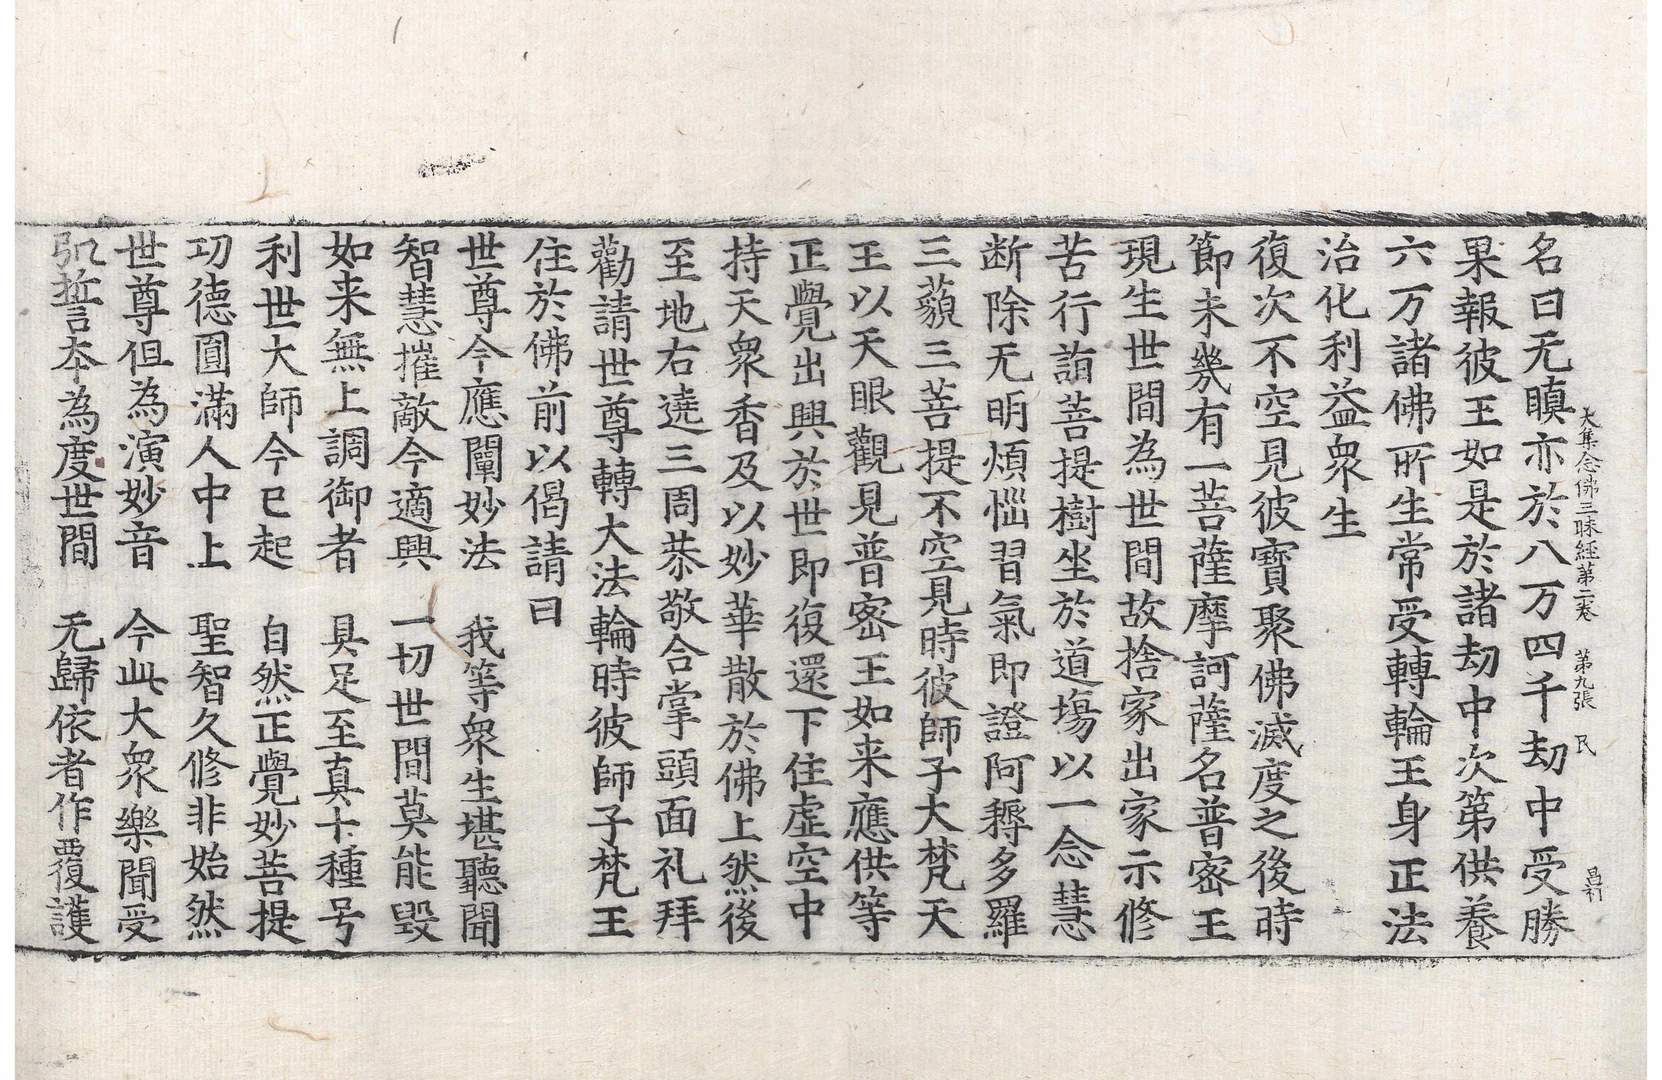 大集念佛三昧經第二卷　第九張　民
名曰无瞋亦於八万四千劫中受勝
果報彼王如是於諸劫中次第供養
六万諸佛所生常受轉輪王身正法
治化利益衆生
復次不空見彼寶聚佛滅度之後時
節未幾有一菩薩摩訶薩名普密王
現生世間為世間故捨家出家示修
苦行詣菩提樹坐於道場以一念慧
断除无明煩惱習氣即證阿耨多羅
三藐三菩提不空見時彼師子大梵天
王以天眼觀見普密王如来應供等
正覺出興於世即復還下住虛空中
持天衆香及以妙華散於佛上然後
至地右遶三周恭敬合掌頭面礼拜
勸請世尊轉大法輪時彼師子梵王
住於佛前以偈請曰
世尊今應闡妙法　我等衆生堪聽聞
智慧摧敵今適興　一切世間莫能毀
如来無上調御者　具足至真十種号
利世大師今已起　自然正覺妙菩提
功德圓滿人中上　聖智久修非始然
世尊但為演妙音　今此大衆樂聞受
弘誓本為度世間　无歸依者作覆護